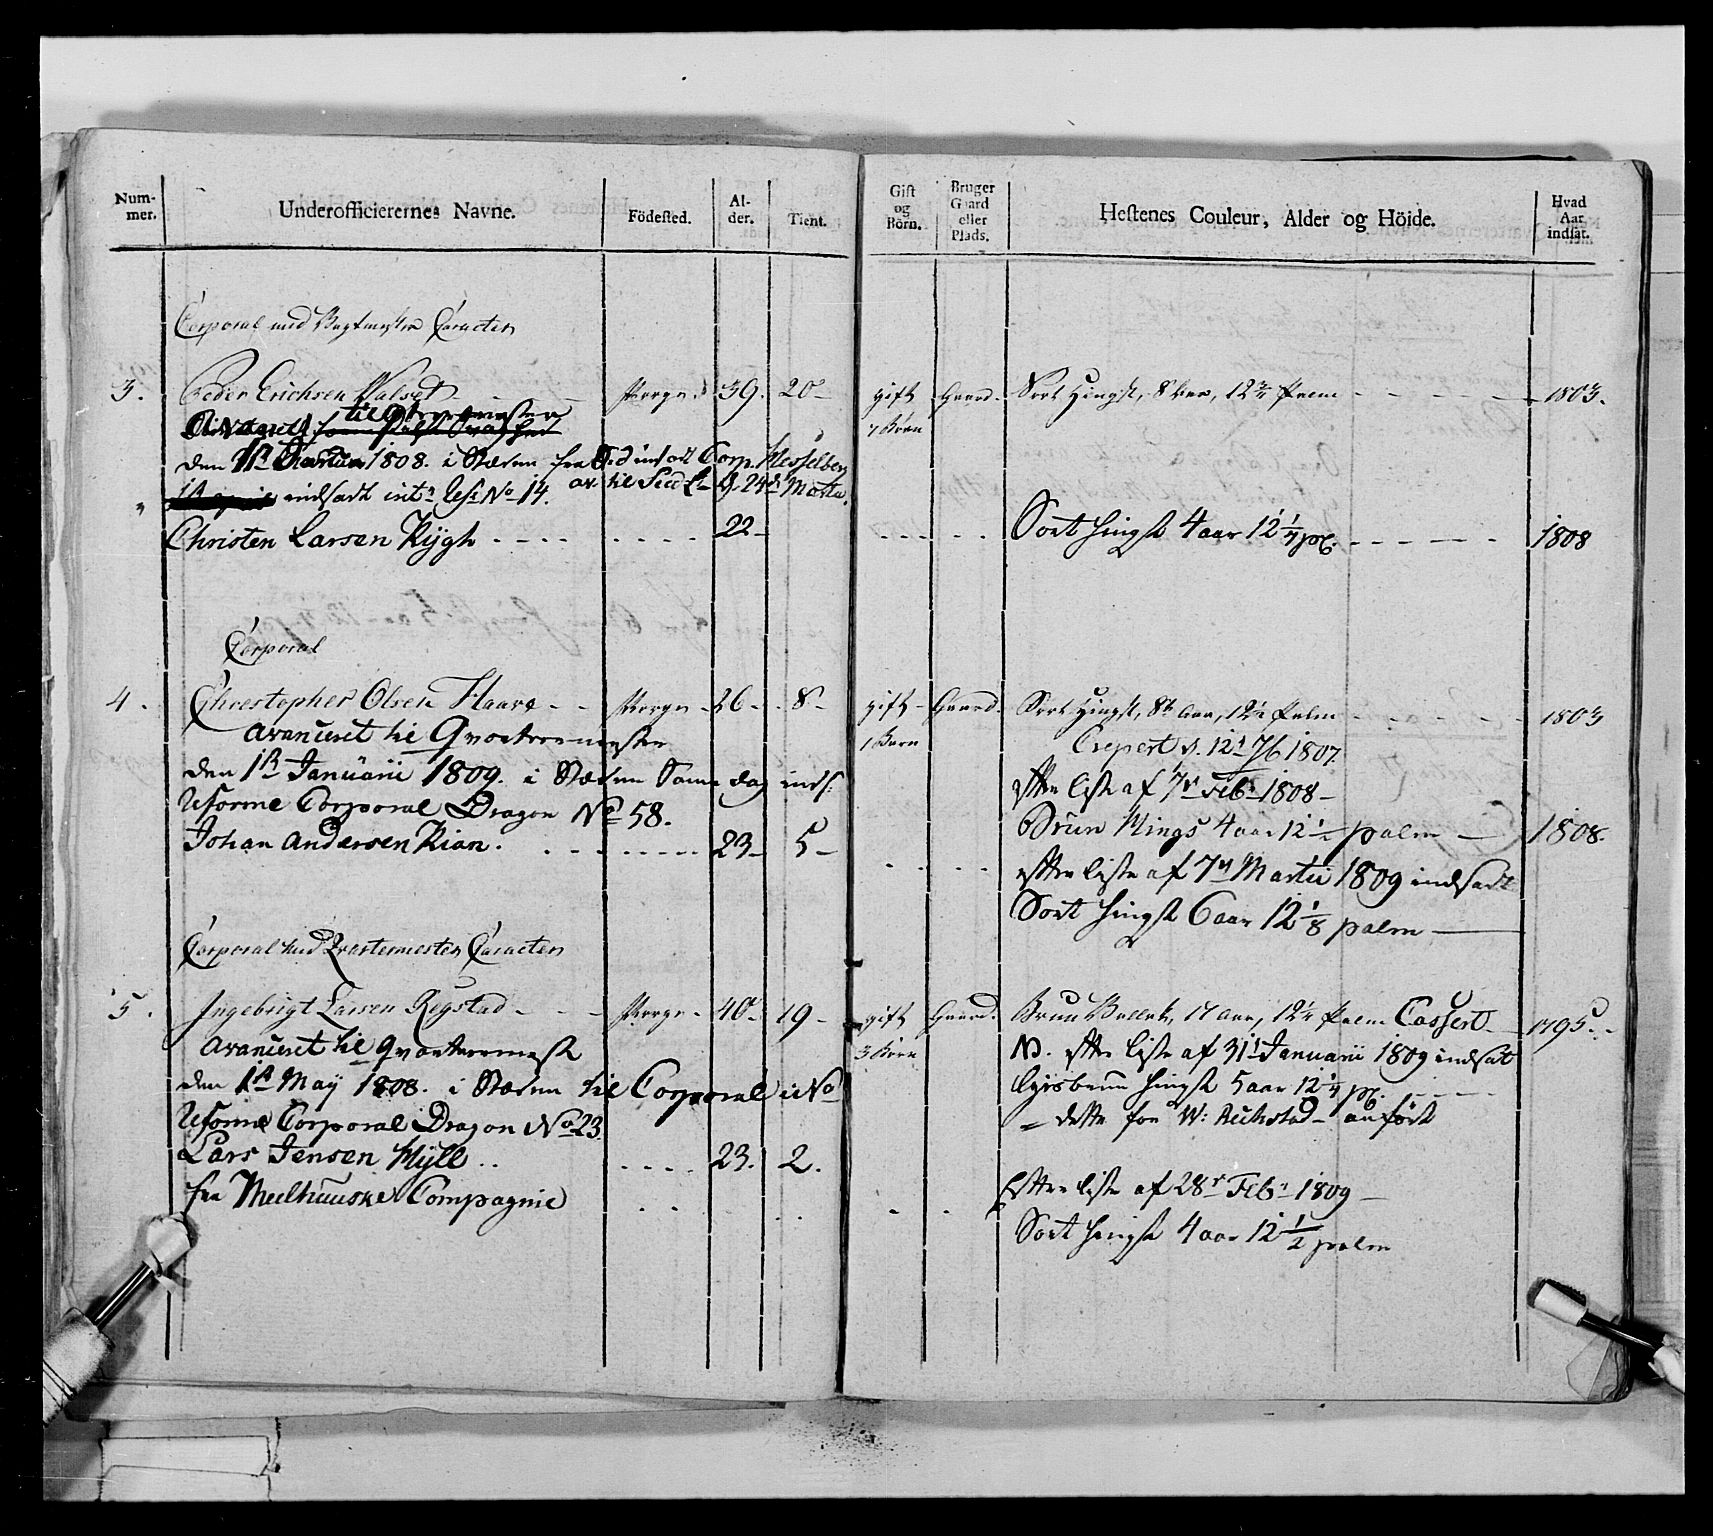 Num-
mer.
Underofficierernes Navne.
Födested.
Al-
der.
Tient.
Gift
og
Börn.
Bruger
Gaard
eller
Plads.
Hestenes Couleur, Alder og Höide.
Hvad
Aar
indsat.
Corporal med Vagtmester Caracter
3. Peder Erichsen Valset Norge 39. 20 gift Gaard Sort Hingst, 8 aar, 12 3/4 Palm 1803.
7 Börn
Avanceret til
den 1808. i Stæden fra Corp. Hesselberg
indsadt No 14.
Christen Larsen Rygh 22 Sort hingst 4 aar 12 1/4 pl. 1808
Corporal
4. Christopher Olsen Haave Norge 26 8 gift Gaard Sort Hingst, 8 aar, 12 1/2 Palm 1803
1 Barn
avanceret til Qvarteermester Crepert d. 12t 7/b 1807.
den 1st Januarii 1809. i Stæden Same dag inds:
efter liste af 7r Feb: 1808
Uforme Corporal Dragon No 58.
Brun Hings 4 aar 12 1/2 palm 1808.
Johan Andersen Kian. 23 5
efter liste af 7r Martii 1809 indsadt
Sort hingst 6 aar 12 1/8 palm
Corporal med Qvartermester Caracter
5. Ingebrigt Larsen Regstad Norge 40 19 gift Gaard Brun Vallak, 17 aar, 12 1/4 Palm Cassert 1795.
3 Börn
avanceret til Qvarteermest
N. efter liste af 31t Januarii 1809 indsat
den 1st May 1808. i Stæden til Corporal i No
hingst 5 aar 12 1/4 pl.
Uforme Corporal Dragon No 23
dette for anfört
Lars Jensen Hyll 23. 2.
fra Meelhuuske Compagnie
Efter liste af 28r Feb: 1809
Sort hingst 4 aar 12 1/2 palm